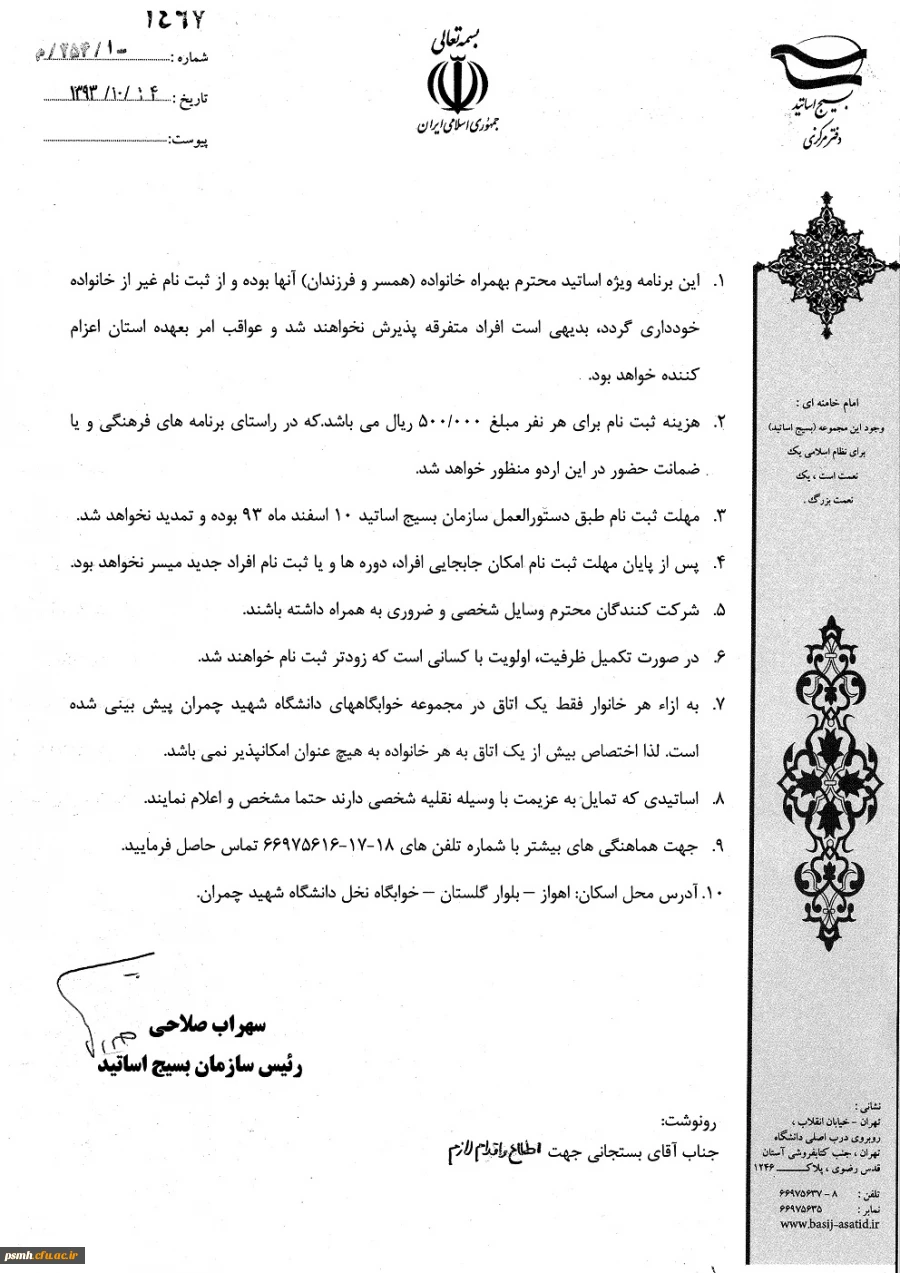 ۱۴۶۷
بسمه تعالی
جمهوری اسلامی ایران
شماره : ۲۵۴/۱۰۰/م
تاریخ : ۱۳۹۳/۱۰/۰۴
پیوست:
بسیج اساتید
دفتر مرکزی
۱. این برنامه ویژه اساتید محترم بهمراه خانواده (همسر و فرزندان) آنها بوده و از ثبت نام غیر از خانواده
خودداری گردد، بدیهی است افراد متفرقه پذیرش نخواهند شد و عواقب امر بعهده استان اعزام
کننده خواهد بود.
۲. هزینه ثبت نام برای هر نفر مبلغ ۵۰۰/۰۰۰ ریال می باشد.که در راستای برنامه های فرهنگی و یا
ضمانت حضور در این اردو منظور خواهد شد.
۳. مهلت ثبت نام طبق دستورالعمل سازمان بسیج اساتید ۱۰ اسفند ماه ۹۳ بوده و تمدید نخواهد شد.
۴. پس از پایان مهلت ثبت نام امکان جابجایی افراد، دوره ها و یا ثبت نام افراد جدید میسر نخواهد بود.
۵. شرکت کنندگان محترم وسایل شخصی و ضروری به همراه داشته باشند.
۶. در صورت تکمیل ظرفیت، اولویت با کسانی است که زودتر ثبت نام خواهند شد.
۷. به ازاء هر خانوار فقط یک اتاق در مجموعه خوابگاههای دانشگاه شهید چمران پیش بینی شده
است. لذا اختصاص بیش از یک اتاق به هر خانواده به هیچ عنوان امکانپذیر نمی باشد.
۸. اساتیدی که تمایل به عزیمت با وسیله نقلیه شخصی دارند حتما مشخص و اعلام نمایند.
۹. جهت هماهنگی های بیشتر با شماره تلفن های ۱۸-۱۷-۶۶۹۷۵۶۱۶ تماس حاصل فرمایید.
۱۰. آدرس محل اسکان: اهواز – بلوار گلستان – خوابگاه نخل دانشگاه شهید چمران.
سهراب صلاحی
رئیس سازمان بسیج اساتید
رونوشت:
جناب آقای بستجانی جهت اطلاع و اقدام لازم
امام خامنه ای :
وجود این مجموعه (بسیج اساتید)
برای نظام اسلامی یک
نعمت است ، یک
نعمت بزرگ .
نشانی :
تهران - خیابان انقلاب ،
روبروی درب اصلی دانشگاه
تهران ، جنب کتابفروشی آستان
قدس رضوی ، پلاک ۱۲۴۶
تلفن : ۸ - ۶۶۹۷۵۶۳۷
نمابر : ۶۶۹۷۵۶۳۵
www.basij-asatid.ir
psmh.cfu.ac.ir